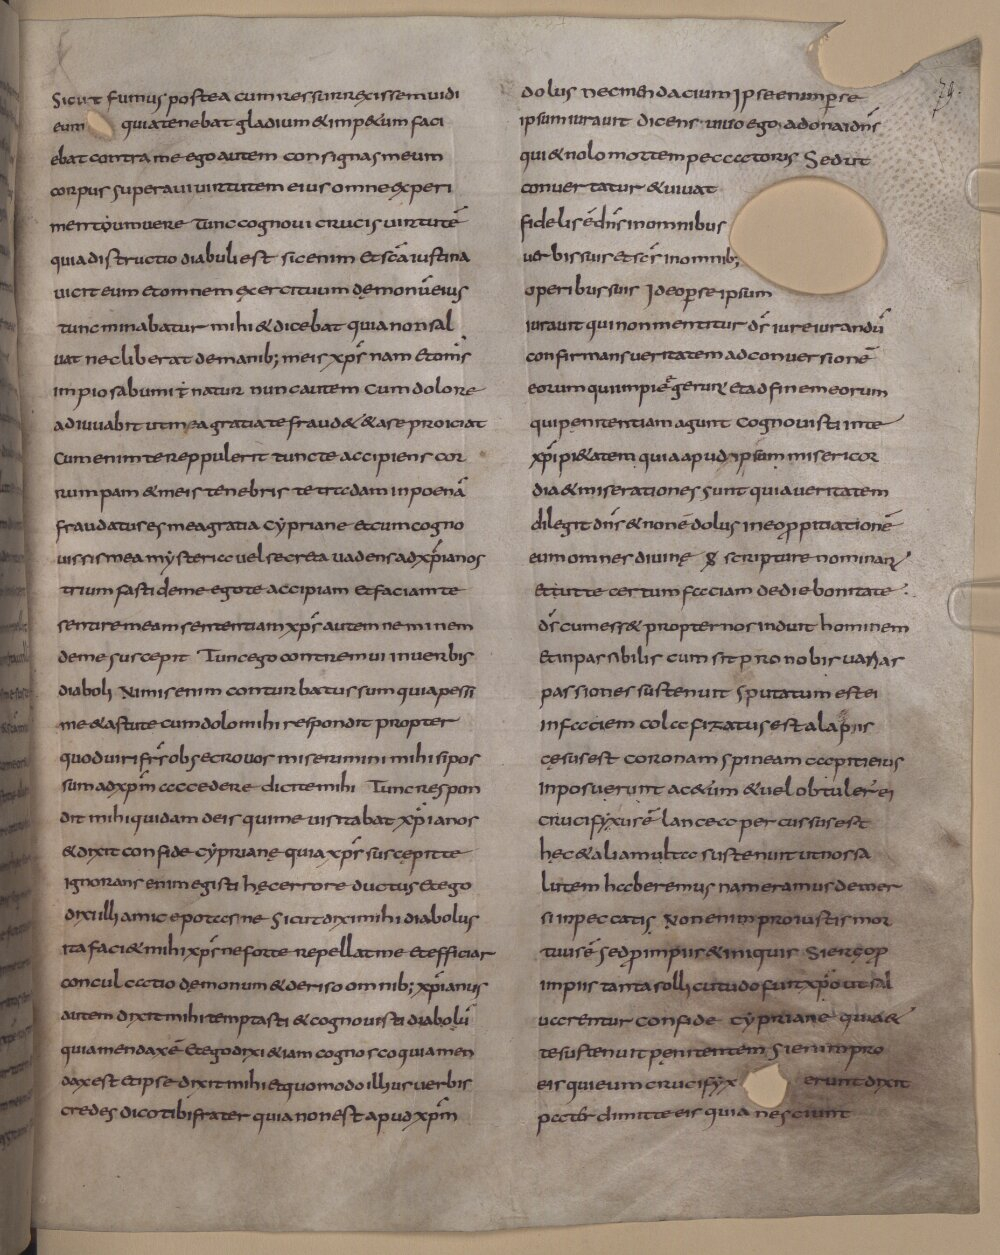 Sicut fumus postea cum ressurrexissem uidi
eum quia tenebat gladium & impetum faci
ebat contra me ego autem consignas meum
corpus superaui uirtutem eius omne experi
mentoum uere Tunc cognoui crucis uirtutē
quia distructio diabuli est sic enim et scā iustina
uicit eum et omnem exercituum demonū eius
tunc minabatur mihi & dicebat quia non sal
uat nec liberat de manib; meis xps̄ nam et om̄s
impios abuminatur nunc autem cum dolore
adiuuabit ut mea gratia te fraud& & a se proiciat
Cum enim te reppulerit tunc te accipiens cor
rumpam & meis tenebris te tradam in poenā
fraudatus es mea gratia cypriane et cum cogno
uissis mea mysteria uel secreta uadens ad xp̄ianos
trium fasti de me ego te accipiam et faciam te
sentire meam sententiam xps̄ autem neminem
de me suscepit Tunc ego contremui in uerbis
diaboli Nimis enim conturbatus sum quia pessi
me & astute cum dolo mihi respondit propter
quod uiri frs̄ obsecro uos miserimini mihi si pos
sum ad xpm̄ accedere dicite mihi Tunc respon
dit mihi quidam de is qui me uisitabat xp̄ianos
& dixit confide cypriane quia xps̄ suscepit te
ignorans enim egisti hec errore ductus et ego
dixi illi amice potes ne Sicut dixi mihi diabolus
ita faci& mihi xps̄ ne forte repellat me et efficiar
conculcatio demonum & deriso omnib; xp̄ianus
autem dixit mihi temptasti & cognouisti diabolū
quia mendax ē et ego dixi & iam cognosco quia men
dax est et ipse dixit mihi et quomodo illius uerbis
credes dico tibi frater quia non est apud xpm̄
dolus nec mendacium Ipse enim per se
ipsum iurauit dicens uiuo ego adonai dns̄
qui & nolo mortem peccatoris Sed ut
conuertatur & uiuat
fidelis ē dns̄ in omnibus
uerbis suis et scs̄ in omnib;
operibus suis Ideo per se ipsum
iurauit qui non mentitur ds̄ iureiurandū
confirmans ueritatem ad conuersionē
eorum qui impie gerunt et ad finem eorum
qui penitentiam agunt Cognouisti inte
xp̄i pi&atem quia apud ipsum misericor
dia & miserationes sunt quia ueritatem
diligit dns̄ & non ē dolus in eo propitiationē
eum omnes diuine scripture nominant
Et ut te certum faciam de die bonitate
ds̄ cum ess& propter nos induit hominem
Et inpassibilis cum sit pro nobis uarias
passiones sustenuit sputatum est ei
in faciem colafizatus est alapiis
cesus est coronam spineam capiti eius
inposuerunt ac&um & uel obtuler̄ ei
crucifyxus ē lancea percussus est
hec & alia multa sustenuit ut nos sa
lutem haberemus nam eramus demer
si in peccatis Non enim pro iustis mor
tuus ē sed p̄ impiis & iniquis Si ergo p̄
impiis tanta sollicitudo fuit xp̄o ut sal
uarentur confide cypriane quia &
te sustenuit penitentem Si enim pro
eis qui eum crucifyxerunt dixit
pater dimitte eis quia nesciunt